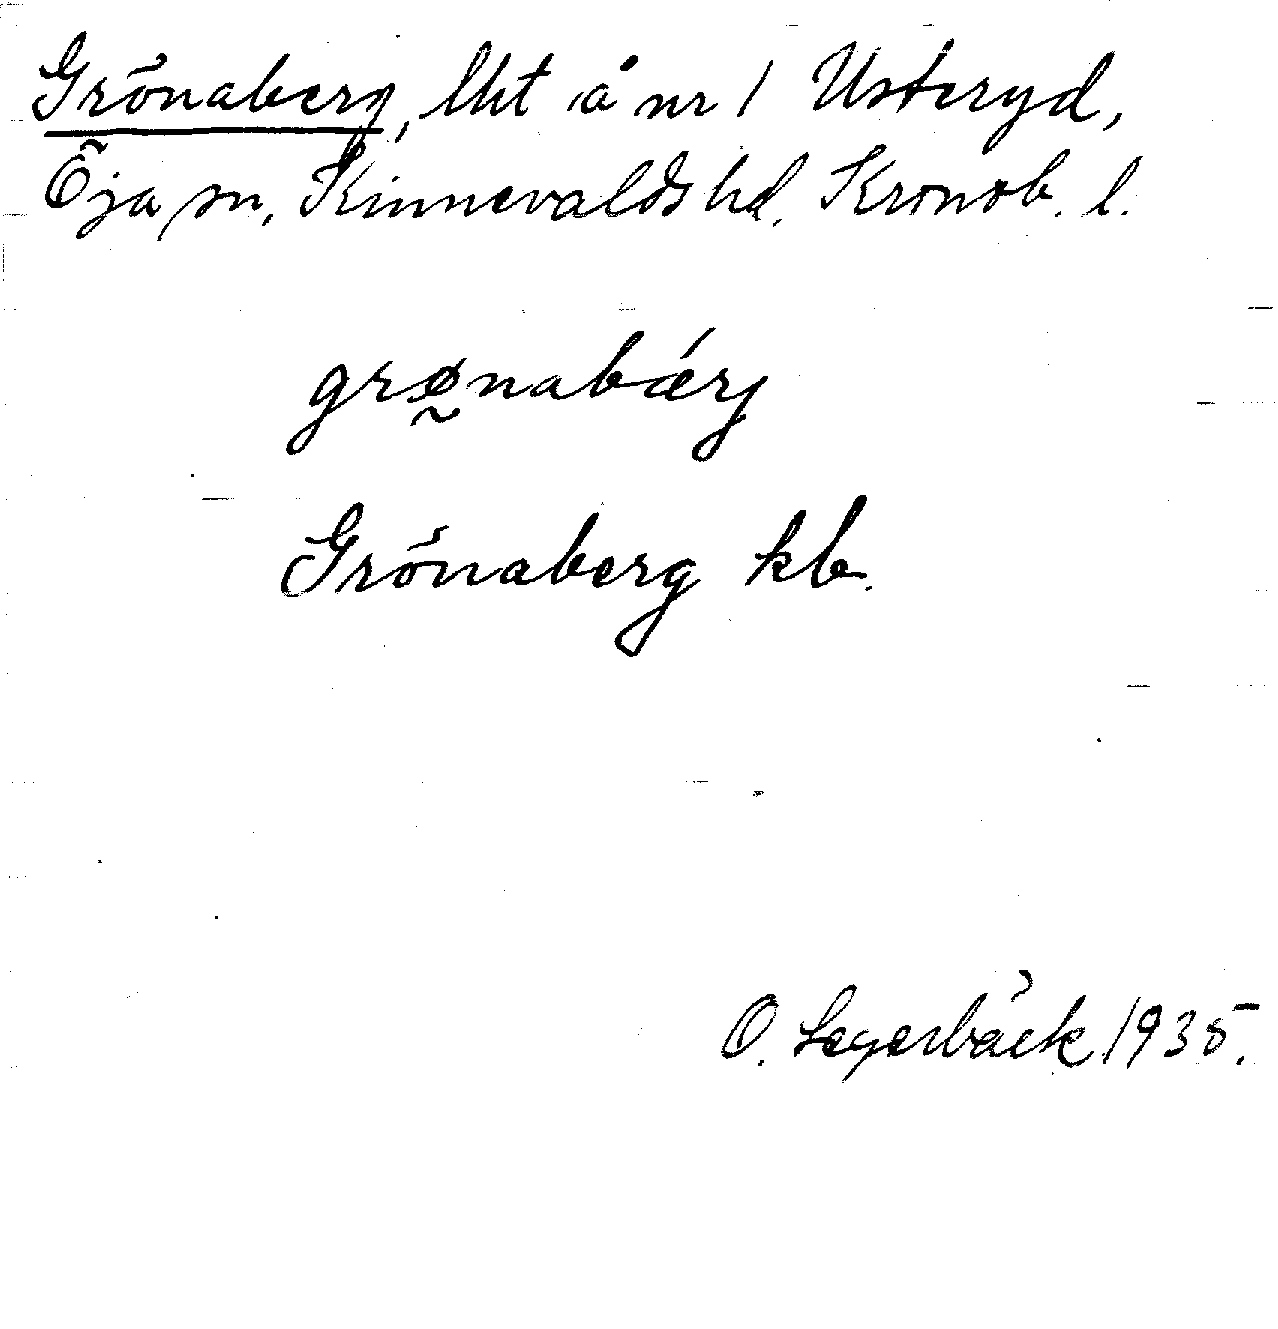 Grönaberg, lht å nr 1 Usteryd,
Öja sn, Kinnevalds hd. Kronob. l.
grø̰nabǽrj
Grönaberg kb.
O. Segerbäck 1935.